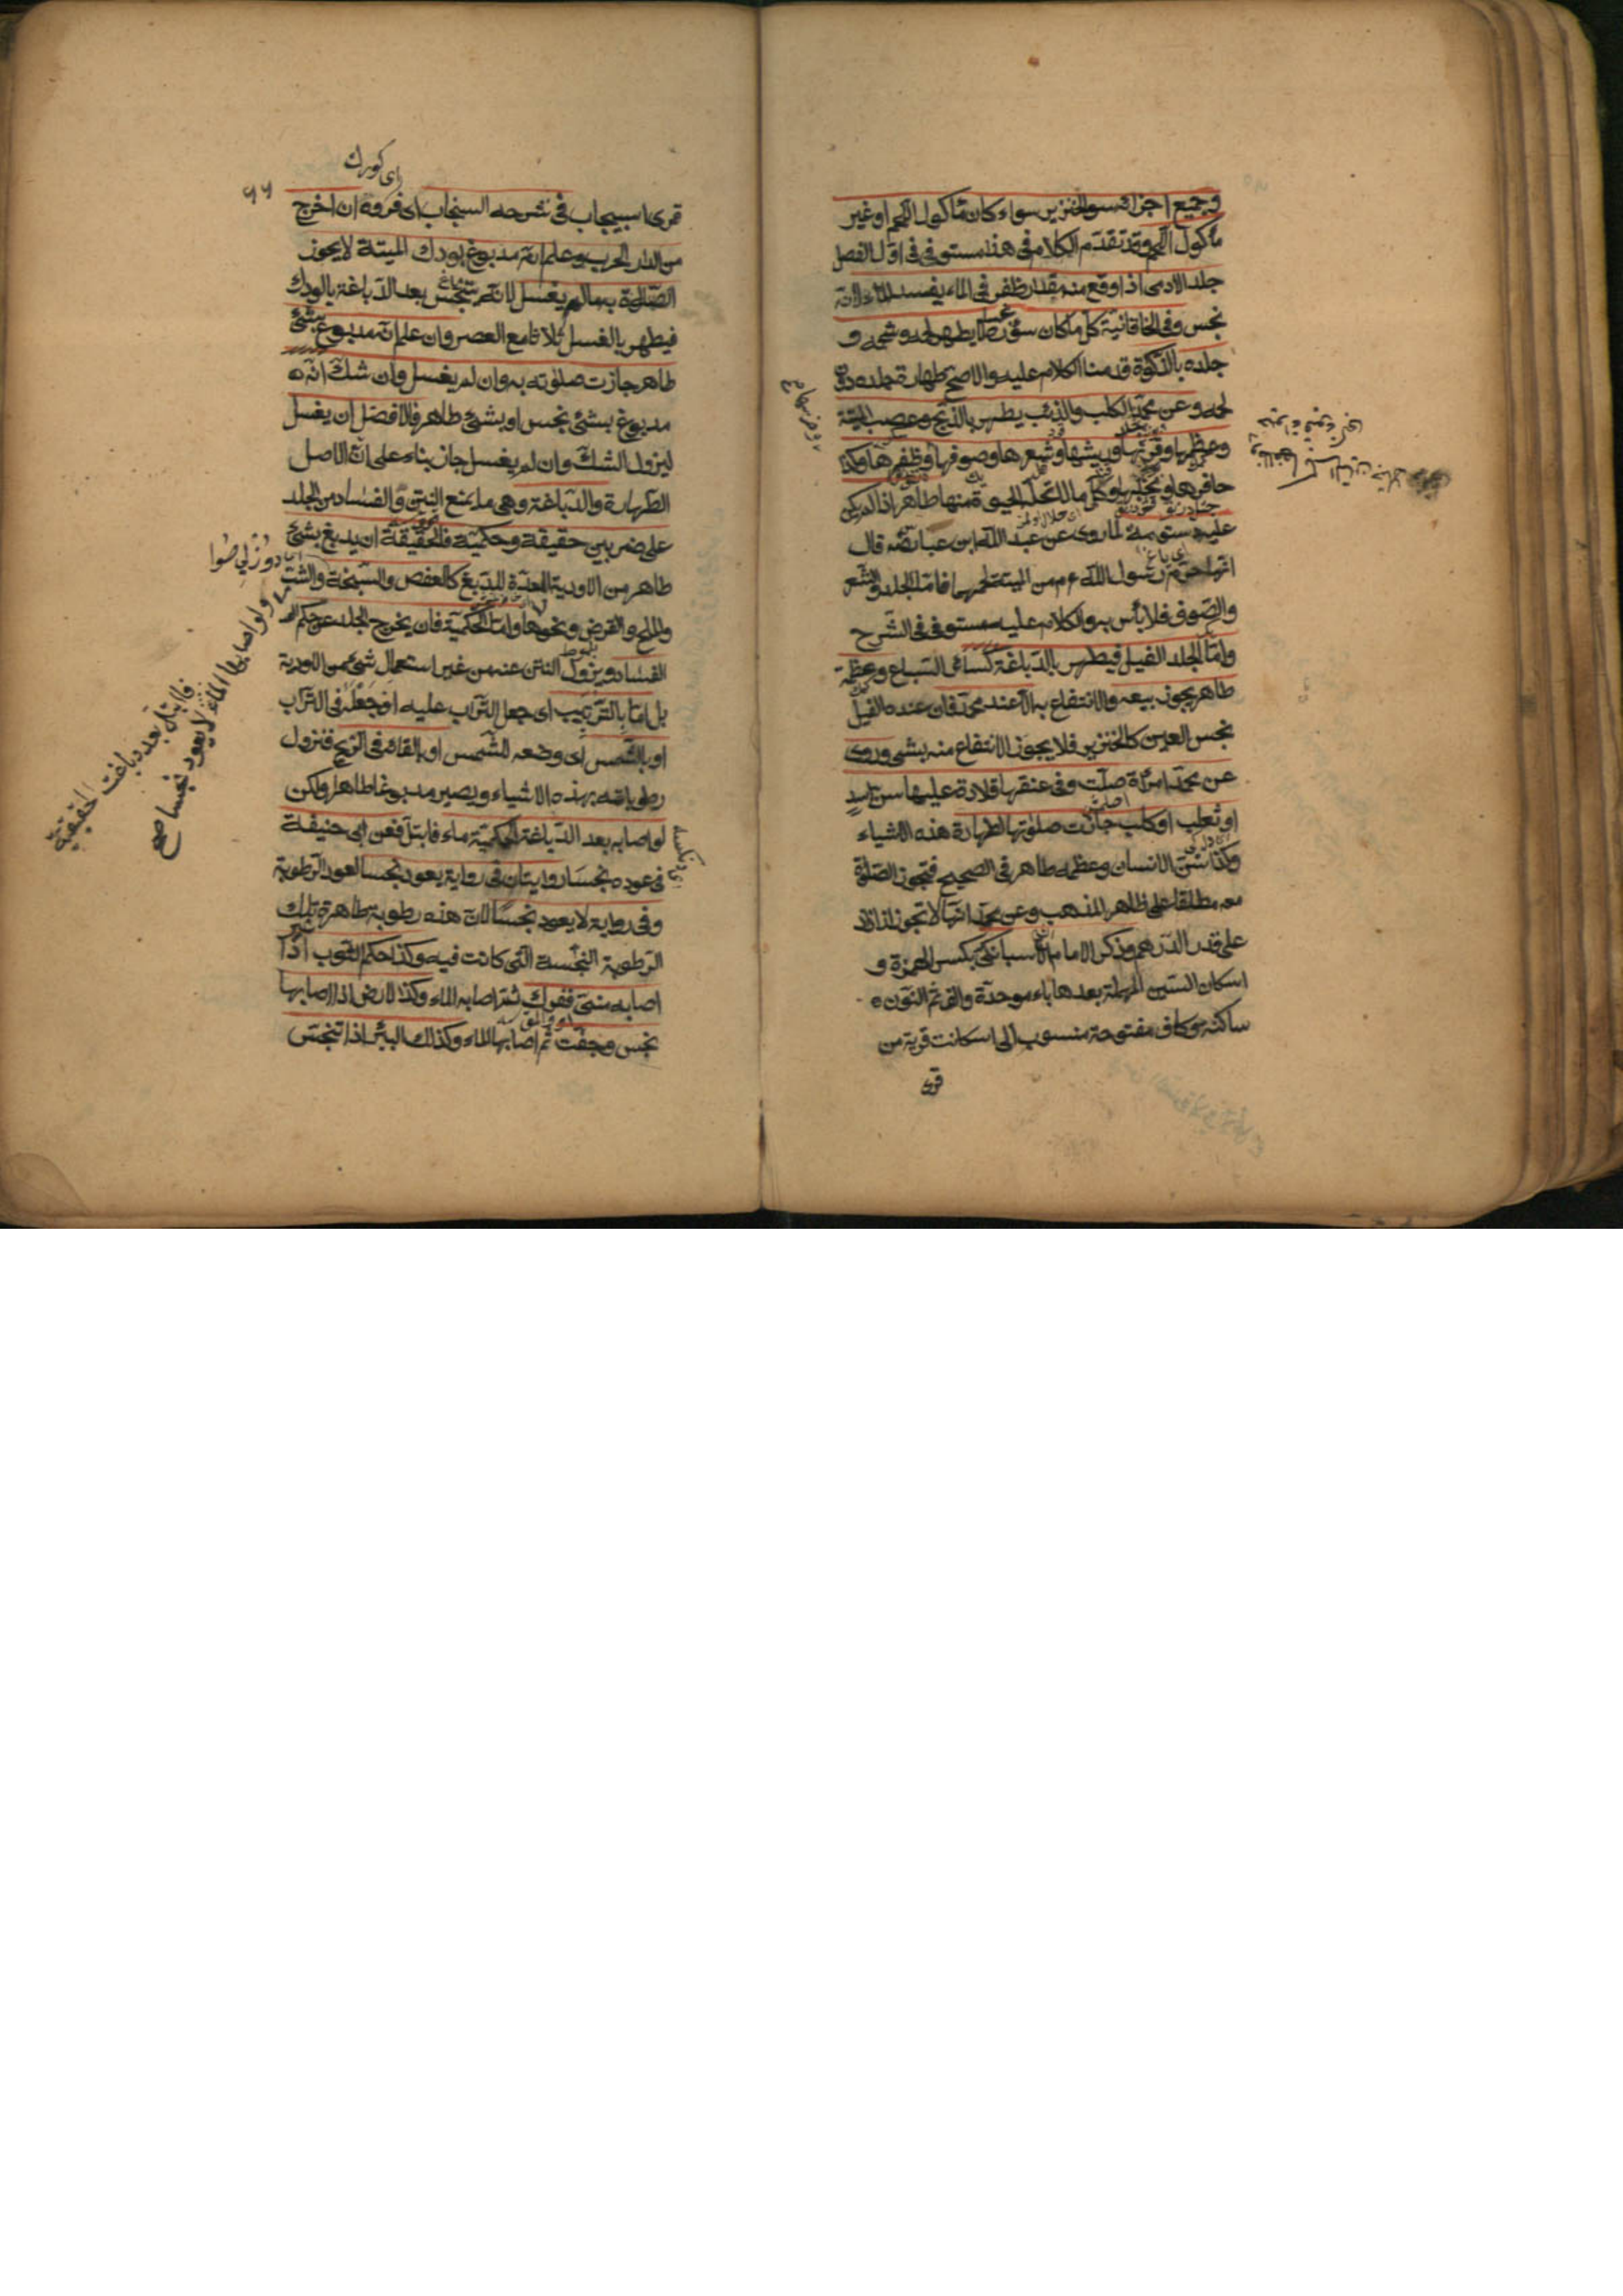 وجميع اجزائه سوا الخنزير سواء كان مأكول اللحم او غير
مأكول اللحم وقد تقدّم الكلام فى هذا مستوفى فى اوّل الفصل
جلد الادمى اذا وقع منه مقدار ظفر فى الماء يفسد الماء لانّه
نجس وفى الخاقانية كلّ ما كان سؤره نجسا لا يطهر لحمه وشحمه و
جلده بالذكوة قدمنا الكلام عليه والاصح طهارة جلده دون
لحمه وعن محمّد الكلب والذئب يطهر بالذبح وعصب الميتة
وعظمها وقرنها وريشها وشعرها وصوفها وظفرها وكذا
حافرها ومخلبها وكلّ ما لا تحلّه الحيوة منها طاهر اذا لم يكن
عليه دسومة لما روى عن عبد اللّه ابن عباس قال
انّما حرّم رسول اللّه عم من الميتة لحمها فامّا الجلد والشّعر
والصّوف فلا بأس به والكلام عليه مستوفى فى الشّرح
وامّا الجلد الفيل فيطهر بالدّباغة كسائر السّباع وعظمه
طاهر يجوز بيعه والانتفاع به الّا عند محمّد فان عنده الفيل
نجس العين كالخنزير فلا يجوز الانتفاع منه بشئ وروى
عن محمّد امرأة صلّت وفى عنقها قلادة عليها سن اسد
او ثعلب او كلب جازت صلوتها لطهارة هذه الاشياء
وكذا سنّ الانسان وعظمه طاهر فى الصحيح فتجوز الصّلوة
معه مطلقا على ظاهر المذهب وعن محمّد انّها لا تجوز اذا زاد
على قدر الدّرهم وذكر الامام الاسبانكى بكسر الهمزة و
اسكان السّين المهملة بعدها باء موحدة والف ثمّ النّون
ساكنه وكاف مفتوحة منسوب الى اسبانكت قرية من
قرى
اى كورك
٦٦
قرى اسبيجاب فى شرحه السنجاب اى فروة ان اخرج
من الدار الحرب وعلم انّه مدبوغ بودك الميتة لا يجوز
الصّلوة به ما لم يغسل لانّه تنجّس بعد الدّباغة بالودك
فيطهر بالغسل ثلاثا مع العصر وان علم انّه مدبوغ بشئ
طاهر جازت صلوته به وان لم يغسل وان شكّ انّه
مدبوغ بشئ نجس او بشئ طاهر فالافضل ان يغسل
ليزول الشكّ وان لم يغسل جاز بناء على انّ الاصل
الطّهارة والدّباغة وهى ما يمنع النتن والفساد من الجلد
على ضربين حقيقة وحكميّة فالحقيقة ان يدبغ بشئ
طاهر من الادوية المعدّة للدّبغ كالعفص والسّبخة والشّب
والملح والقرض ونحوها وامّا الحكميّة فان يخرج الجلد عن حكم
الفساد ويزول النتن عنه من غير استعمال شئ من الادوية
بل امّا بالتّرتيب اى جعل التّراب عليه او جعله فى التّراب
او بالشّمس اى وضعه للشّمس او بالقائه فى الرّيح فتزول
رطوباته بهذه الاشياء ويصير مدبوغا طاهرا ولكن
لو اصابه بعد الدّباغة الحكميّة ماء فابتلّ فعن ابى حنيفة
فى عوده نجسا روايتان فى رواية يعود نجسا لعود الرّطوبة
وفى رواية لا يعود نجسا لانّ هذه رطوبة طاهرة غير تلك
الرّطوبة النّجسة الّتى كانت فيه وكذا حكم الثوب اذا
اصابه منىّ ففرك ثمّ اصابه الماء وكذا الارض اذا اصابها
نجس وجفّت ثمّ اصابها الماء وكذلك البئر اذا تنجّس
ولو اصابها الماء لا يعود نجسا صح
فابتل بعد دباغت الحقيقية